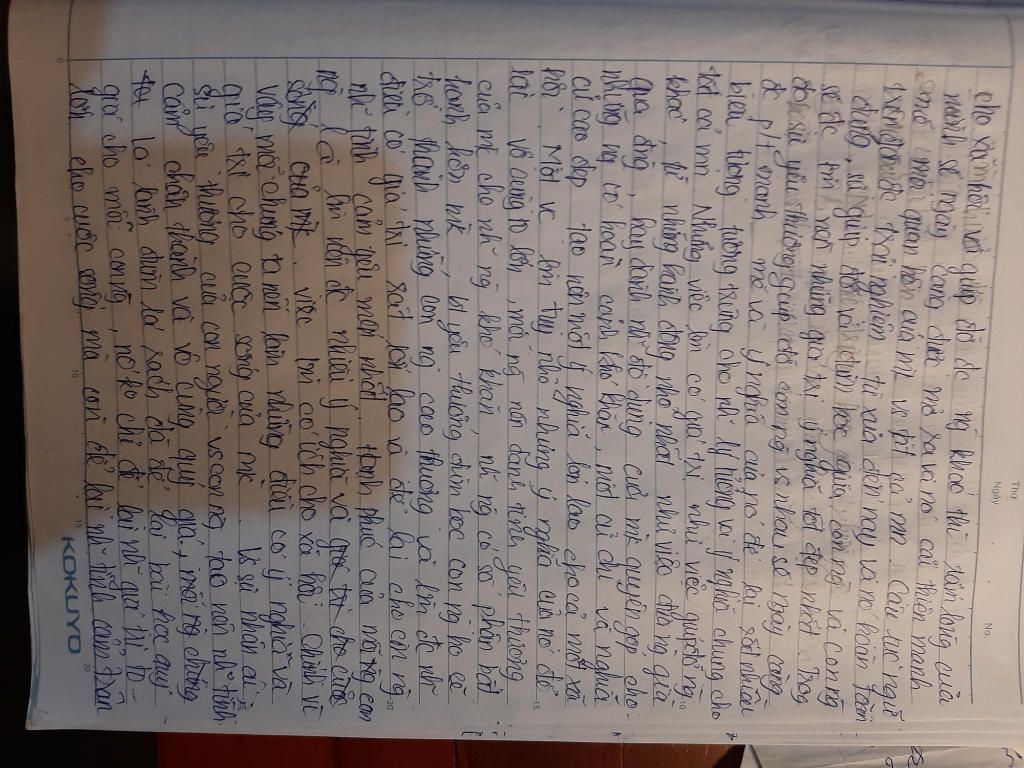 Thứ
Ngày
No.
cho xã hội và giúp đỡ đc ng khác thì tấm lòng của
mình sẽ ngày càng được mở ra và nó cải thiện mạnh
mối quan hệ của mk vs tất cả mn. Câu tục ngữ
được trải nghiệm từ xưa đến nay và nó hoàn toàn
đúng, sự giúp đỡ và đùm bọc giữa con ng và con ng
sẽ đc tạo nên những giá trị ý nghĩa tốt đẹp nhất. Trog
đó sự yêu thương giúp đỡ con ng vs nhau sẽ ngày càng
đc p/t mạnh mẽ và ý nghĩa của nó để lại rất nhiều
biểu tượng tượng trưng cho nh lý tưởng và ý nghĩa chung cho
tất cả mn. Những việc làm có giá trị như việc giúp đỡ ng
khác, từ những hành động nhỏ nhất như việc đưa ng già
qua đường, hay dành nh đồ dùng cũ của mk quyên góp cho
những ng có hoàn cảnh khó khăn, một cử chỉ và nghĩa
cử cao đẹp tạo nên một ý nghĩa lớn lao cho cả một xã
hội. Một vc làm tuy nhỏ nhưng ý nghĩa của nó để
lại vô cùng to lớn, mỗi ng nên dành tình yêu thương
của mk cho nh ng khó khăn nh ng có số phận bất
hạnh hơn mk, bt yêu thương đùm bọc con ng họ sẽ
trở thành những con ng cao thượng và làm đc nh
điều có giá trị rất lớn lao và để lại cho chúng
nh tình cảm quý mến nhất. Hạnh phúc của mỗi ng con
ng là làm nên đc nhiều ý nghĩa và giá trị cho cuộc
sống của mk, việc làm có ích cho xã hội. Chính vì
vậy mỗi chúng ta nên làm những điều có ý nghĩa và
giá trị cho cuộc sống của mk. Vs sự nhân ái,
sự yêu thương của con người vs con ng tạo nên nh tình
cảm chân thành và vô cùng quý giá, mỗi ng chúng
ta lá lành đùm lá rách đã để lại bài học quý
giá cho mỗi con ng, nó ko chỉ để lại nh giá trị to
lớn cho cuộc sống mà còn để lại nh tình cảm
5
10
15
20
KOKUYO